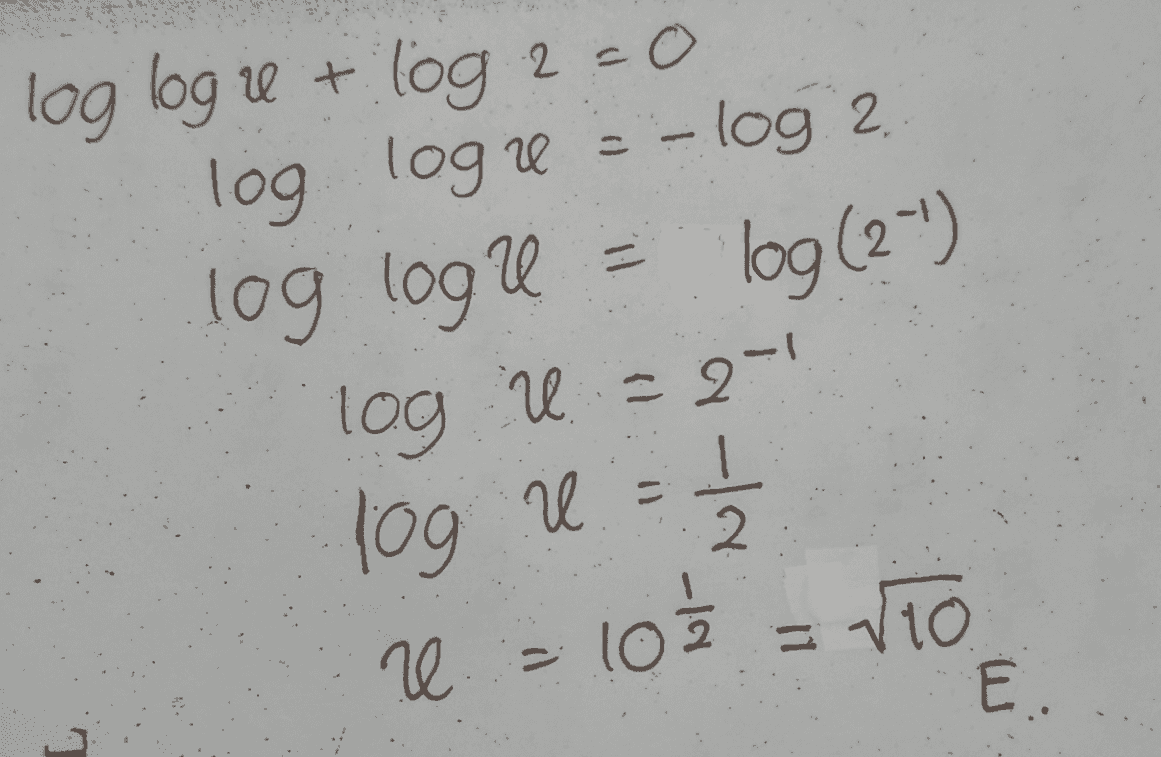 log log x + log 2 = 0
log log x = - log 2.
log log x = log (2⁻¹)
log x = 2⁻¹
log x = 1/2
x = 10^(1/2) = √10
E..